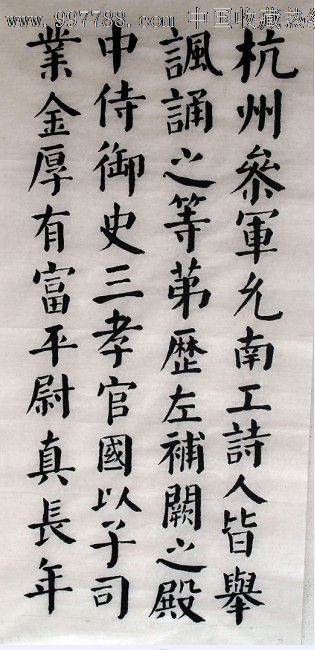 www.997788.com 中国收藏热线
杭州叅軍允南工詩人皆舉
諷誦之等苐歷左補闕之殿
中侍御史三孝官國以子司
業金厚有富平尉真長年